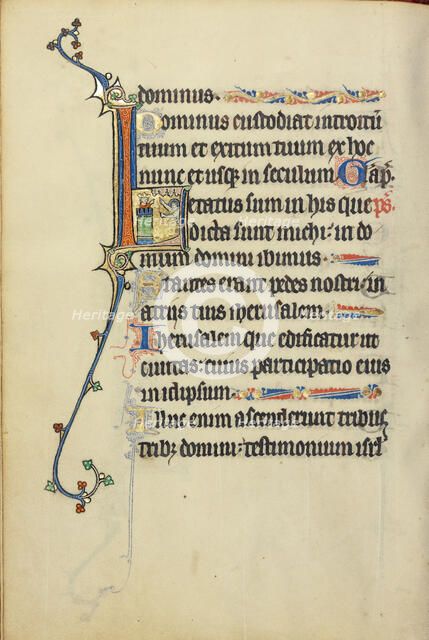 dominus.
Dominus custodiat introitū
tuum et exitum tuum ex hoc
nunc et usqꝫ in seculum. Cap̄.
Letatus sum in his que ps̄.
dicta sunt michi: in do
mum domini ibimus
Stantes erant pedes nostri: in
atriis tuis iherusalem
Iherusalem que edificatur ut
ciuitas: cuius participatio eius
in idipsum.
Illuc enim ascenderunt tribus
tribꝫ domini: testimonium isrl
Heritage
Heritage
Heritage
Heritage
Heritage
Heritage